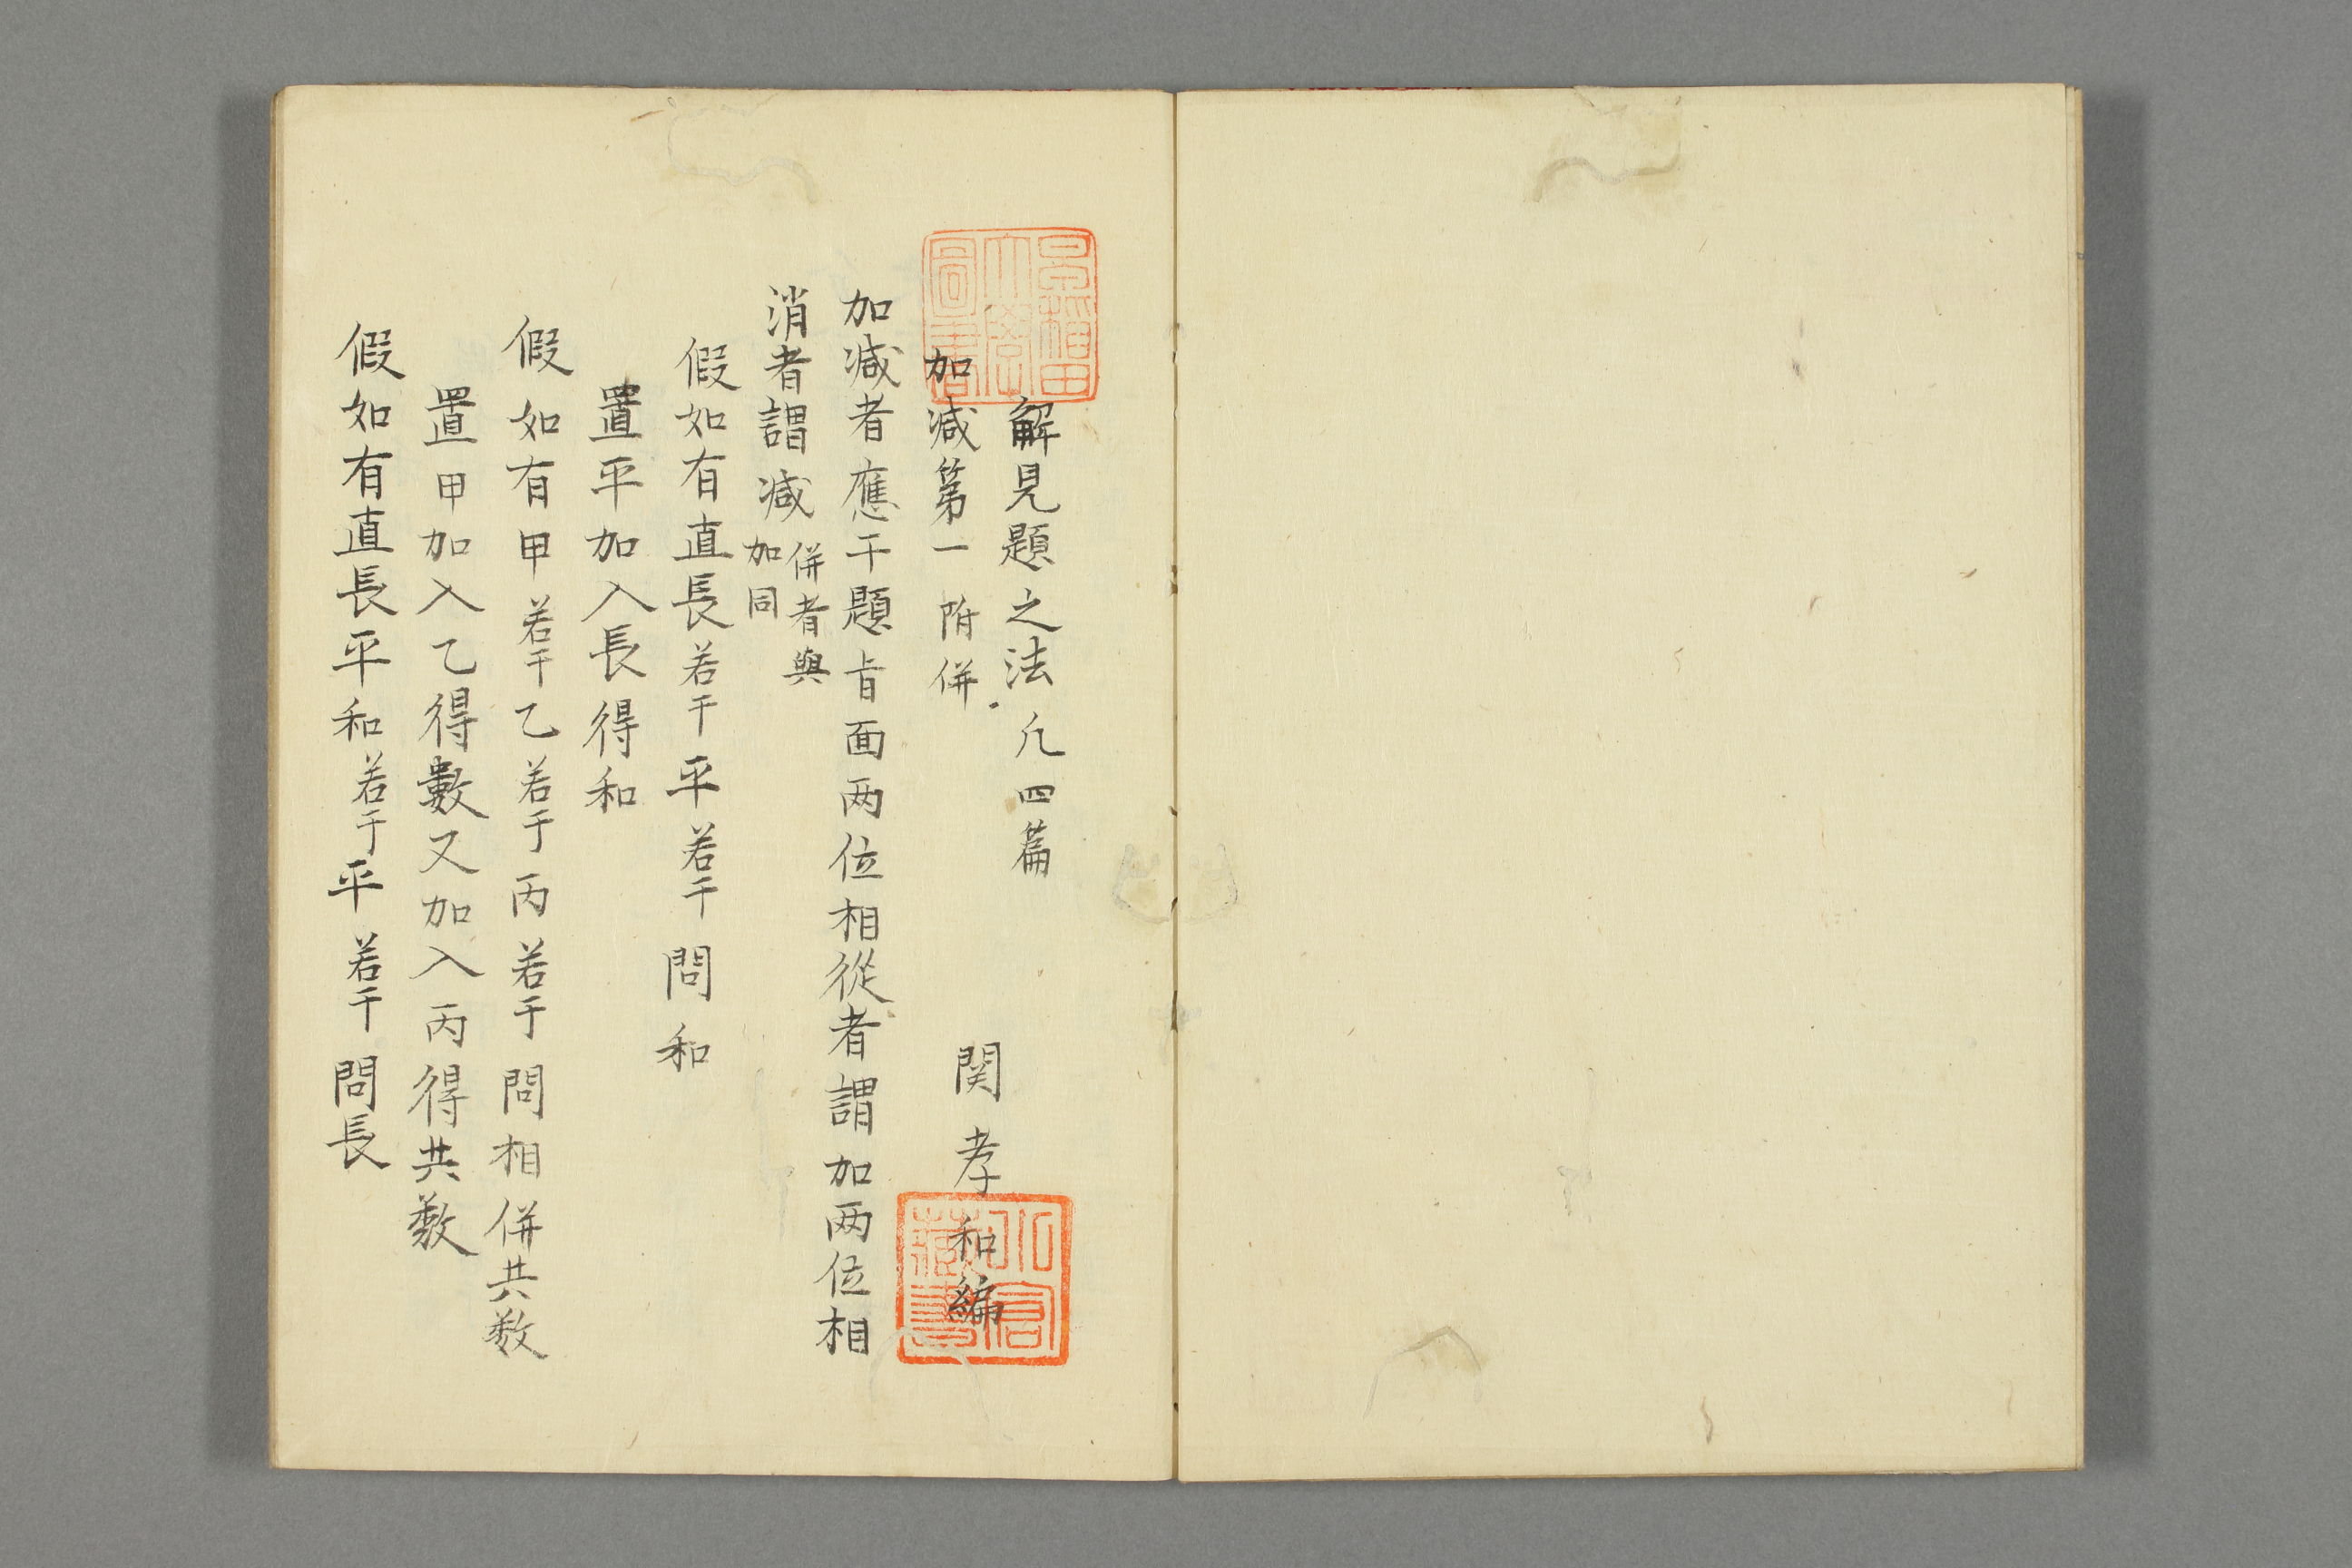 解見題之法 凢四篇
関孝和編
加减第一 附併
加减者應于題旨面两位相從者謂加两位相
消者謂减 併者與
加同
假如有直長若干平若干問和
置平加入長得和
假如有甲若干乙若于丙若于問相併共数
置甲加入乙得數又加入丙得共数
假如有直長平和若于平若干問長
早稲田
大學
圖書
小倉
藏書